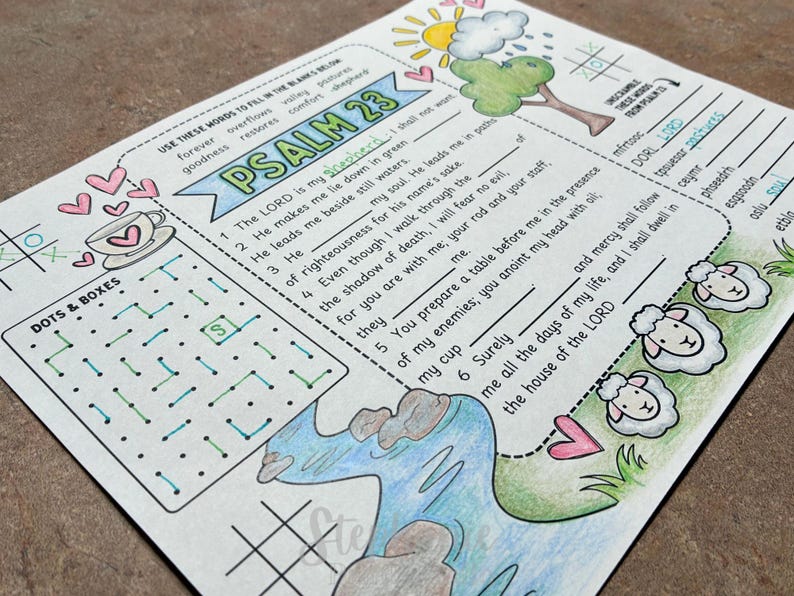 USE THESE WORDS TO FILL IN THE BLANKS BELOW:
forever overflows valley pastures
goodness restores comfort shepherd
PSALM 23
The LORD is my shepherd; I shall not want.
2 He makes me lie down in green ______.
He leads me beside still waters.
3 He ______ my soul. He leads me in paths
of righteousness for his name's sake.
4 Even though I walk through the ______ of
the shadow of death, I will fear no evil,
for you are with me; your rod and your staff,
they ______ me.
5 You prepare a table before me in the presence
of my enemies; you anoint my head with oil;
my cup ______.
6 Surely ______ and mercy shall follow
me all the days of my life, and I shall dwell in
the house of the LORD ______.
UNSCRAMBLE
THESE WORDS
FROM PSALM 23
mfrtooc
DORL LORD
pseuasr pastures
ceymr
phseedrh
osgoodn
oslu soul
X
O
X
O
X
DOTS & BOXES
S